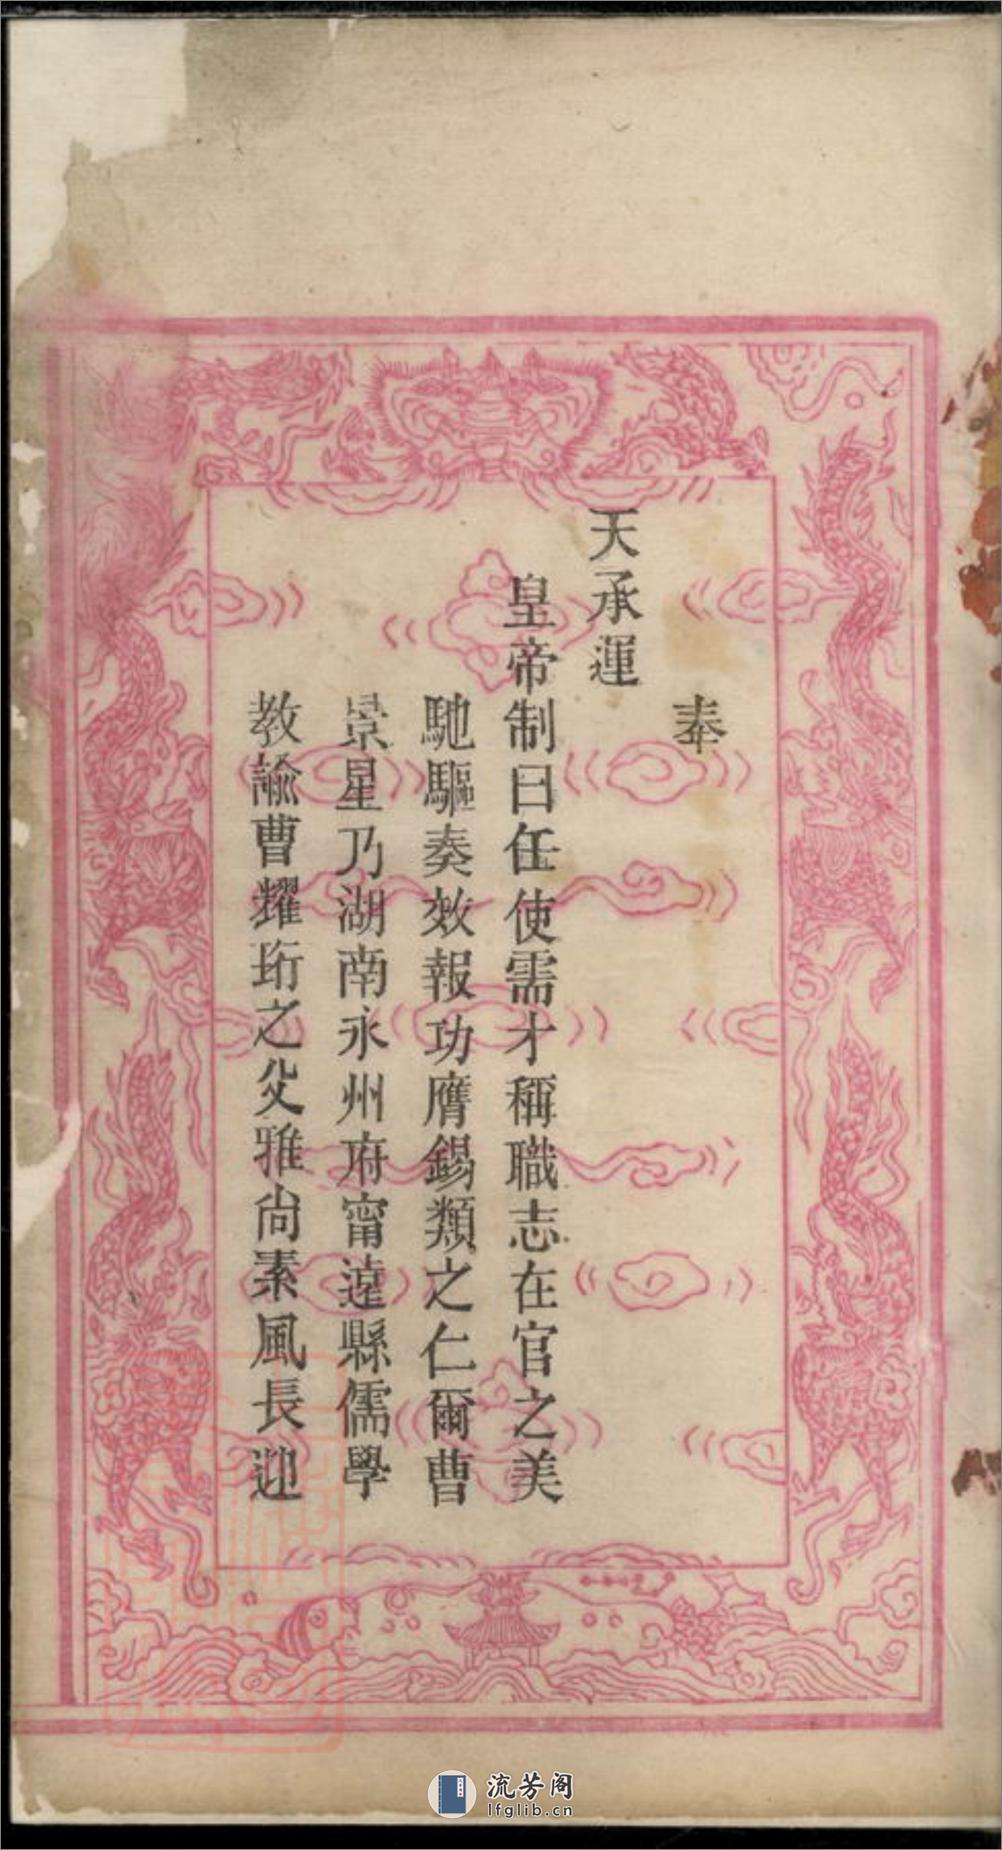 奉
天承運
皇帝制曰任使需才稱職志在官之美
馳驅奏效報功膺錫類之仁爾曹
景星乃湖南永州府甯遠縣儒學
教諭曹耀珩之父雅尚素風長迎
流芳阁
lfglib.cn